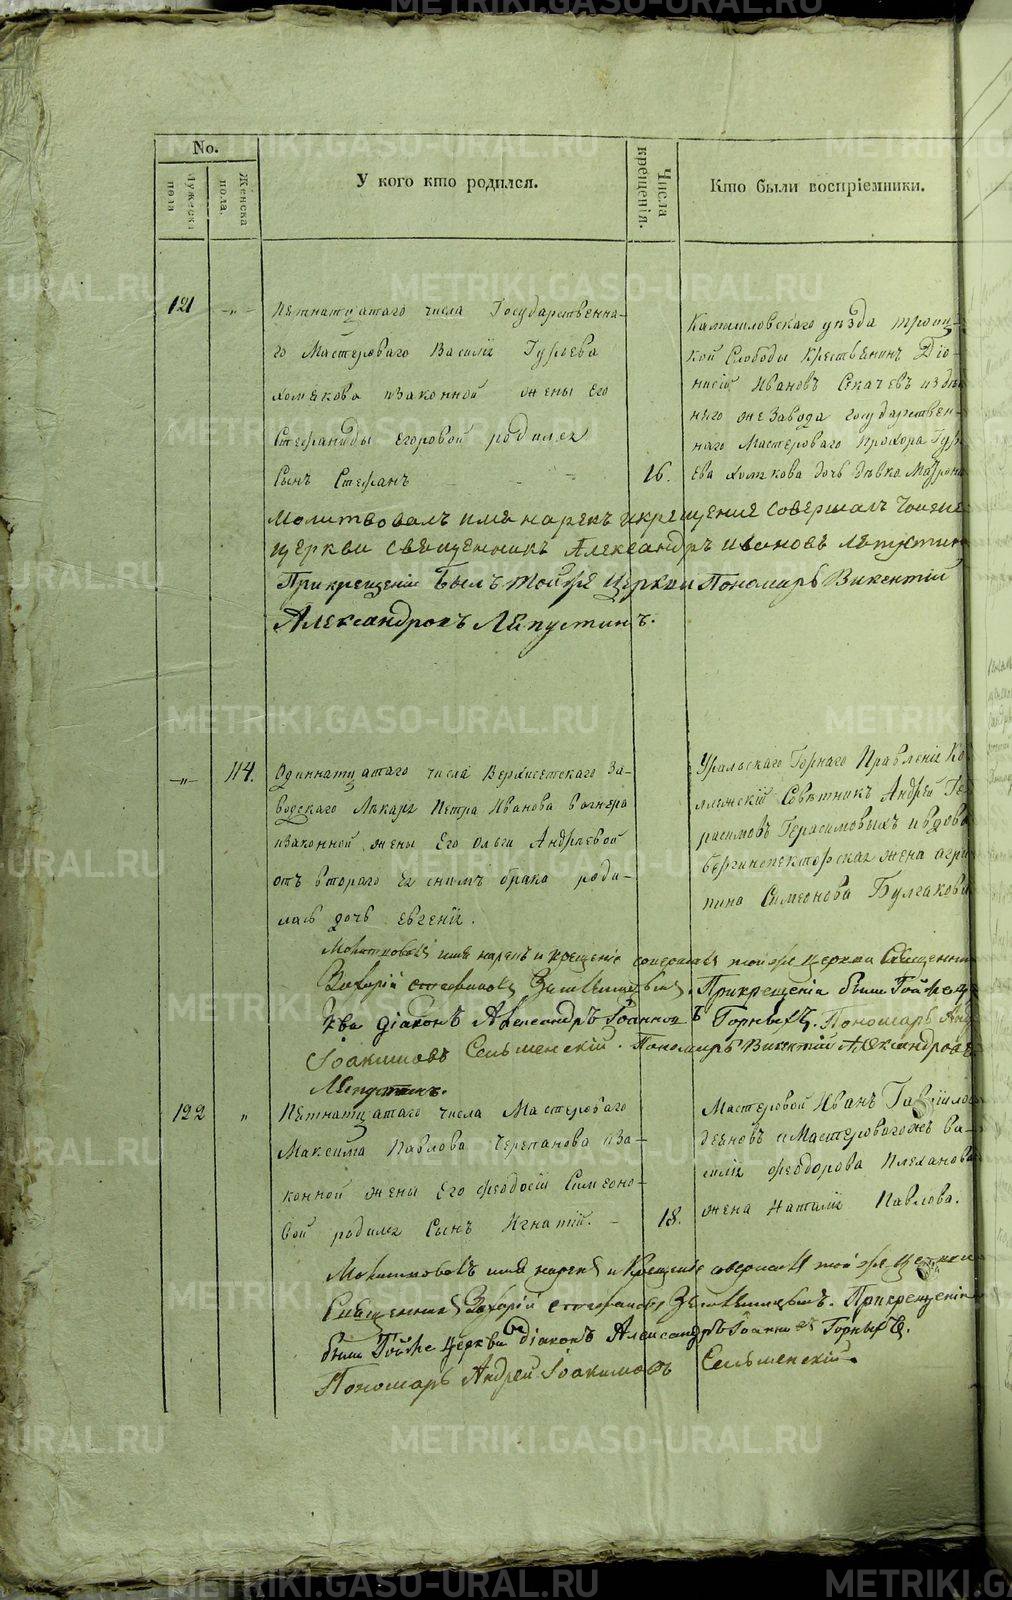 No.
Мужеска пола
Женска пола.
У кого кто родился.
Числа крещенія.
Кто были воспріемники.
121
Пятнатцатаго числа Государственна-
го Мастероваго Василія Гурьева
Хомякова изаконной жены его
Стефаниды Егоровой родился
Сынъ Стефанъ
16.
Камышловскаго уѣзда троиц-
кой Слободы Крестьянинъ Діо-
нисій Ивановъ Секачевъ издѣш-
няго же Завода государствен-
наго Мастероваго Прохора Гурь-
ева Хомякова дочь дѣвка Матрона
Молитвовалъ имя нарекъ икрещеніе совершалъ
церкви священникъ Александръ Ивановъ Лепустинъ
Прикрещеніи былъ тойже Церкви Пономарь Викентій
Александровъ Лепустинъ.
114.
Одиннатцатаго числа Верхисетскаго За-
водскаго Лѣкаря Петра Иванова Вагнера
изаконной жены Его Ольги Андреевой
отъ втораго Ея снимъ брака роди-
лась дочь Евгенія.
Уральскаго Горнаго Правленія Кол-
ляжскій Совѣтникъ Андрей Ге-
расимовъ Герасимовыхъ ивдова
бергинспекторская жена Агри-
пина Симеонова Булгакова
имя нарекъ и крещеніе совершалъ тойже церкви Священникъ
Захарій
Прикрещеніи были Тойже цер-
кви діаконъ Александръ Іоанновъ Горныхъ. Пономарь Анд.
Іоакимовъ Сельменскій. Пономарь Викентій Александровъ
Лепустинъ.
122
Пятнатцатаго числа Мастероваго
Максима Павлова Черепанова иза-
конной жены Его Феодосіи Симеоно-
вой родился Сынъ Игнатій.
18.
Мастеровой Иванъ Гавріиловъ
иМастероваго Ва-
силія Феодорова Плеханова
жена Наталія Павлова.
Молитвовалъ имя нарекъ и Крещеніе совершалъ той же церкви
Священникъ Захарій
Прикрещеніи
были Тойже церкви діаконъ Александръ Іоанновъ Горныхъ.
Пономарь Андрей Іоакимовъ Сельменскій.
METRIKI.GASO-URAL.RU